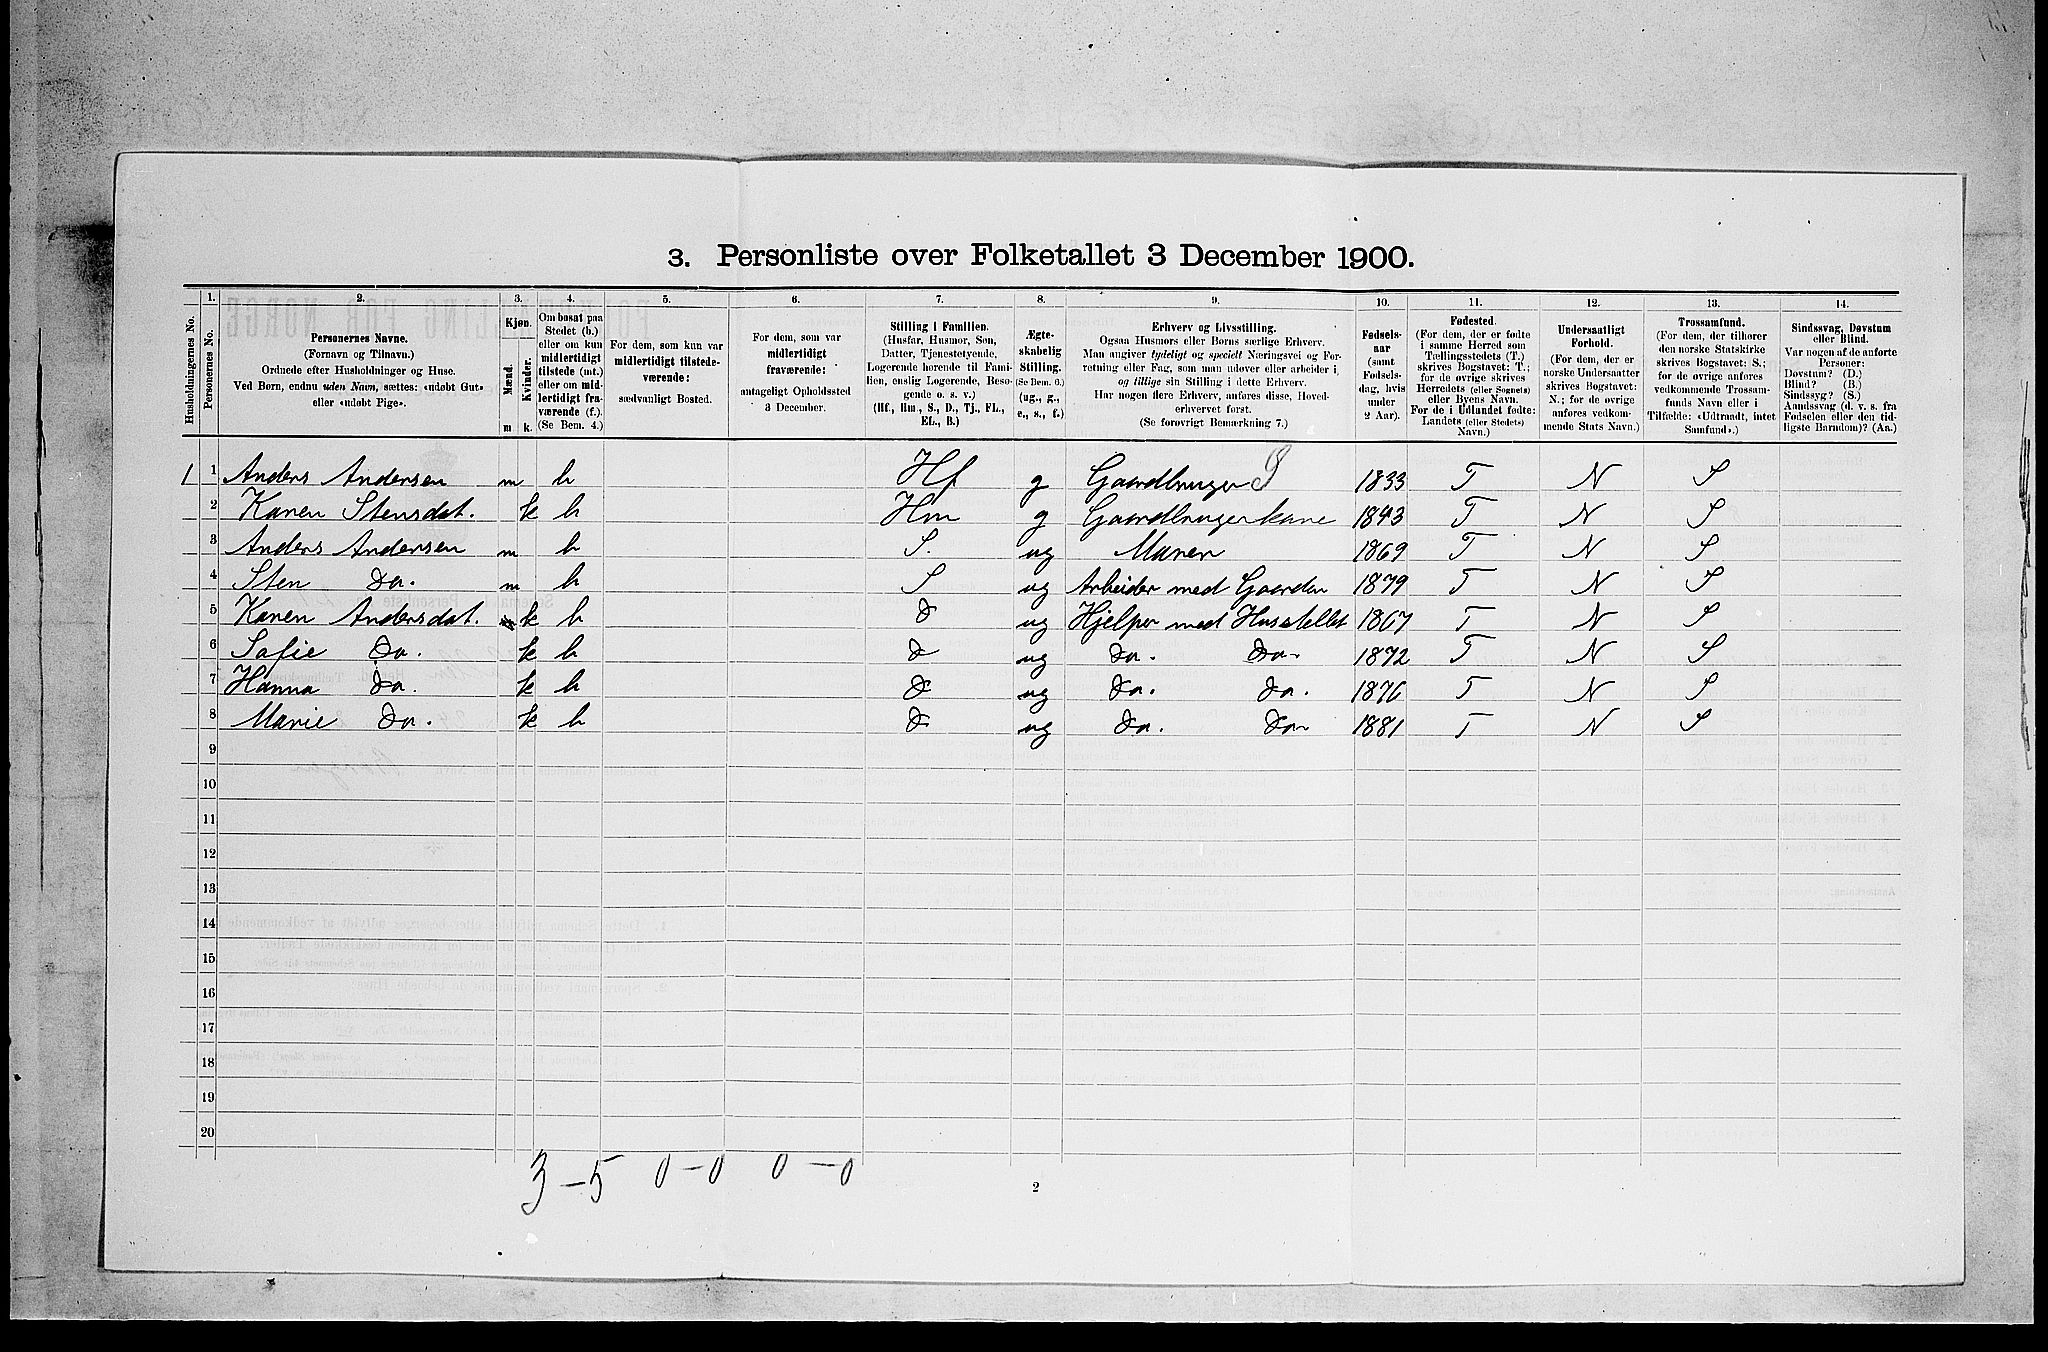 3. Personliste over Folketallet 3 December 1900.
1. 2. 3. 4. 5. 6. 7. 8. 9. 10. 11. 12. 13. 14.
Husholdningernes No.
Personernes No.
Personernes Navne.
(Fornavn og Tilnavn.)
Ordnede efter Husholdninger og Huse.
Ved Børn, endnu uden Navn, sættes: «udøbt Gut»
eller «udøbt Pige».
Kjøn.
Mænd.
Kvinder.
m k.
Om bosat paa
Stedet (b.)
eller om kun
midlertidigt
tilstede (mt.)
eller om mid-
lertidigt fra-
værende (f.)
(Se Bem. 4.)
For dem, som kun var
midlertidigt tilstede-
værende:
sædvanligt Bosted.
For dem, som var
midlertidigt
fraværende:
antageligt Opholdssted
3 December.
Stilling i Familien.
(Husfar, Husmor, Søn,
Datter, Tjenestetyende,
Logerende hørende til Fami-
lien, enslig Logerende, Beso-
gende o. s. v.)
(Hf., Hm., S., D., Tj., FL.,
EL., B.)
Ægte-
skabelig
Stilling.
(Se Bem. 6.)
(ug., g.,
e., s., f.)
Erhverv og Livsstilling.
Ogsaa Husmors eller Børns særlige Erhverv.
Man angiver tydeligt og specielt Næringsvei og For-
retning eller Fag, som man udøver eller arbeider i,
og tillige sin Stilling i dette Erhverv.
Har nogen flere Erhverv, anføres disse, Hoved-
erhvervet først.
(Se forøvrigt Bemærkning 7.)
Fødsels-
aar
(samt
Fødsels-
dag, hvis
under
2 Aar).
Fødested.
(For dem, der er fødte
i samme Herred som
Tællingsstedets (T.)
skrives Bogstavet: T.;
for de øvrige skrives
Herredets (eller Sognets)
eller Byens Navn.
For de i Udlandet fødte:
Landets (eller Stedets)
Navn.)
Undersaatligt
Forhold.
(For dem, der er
norske Undersaatter
skrives Bogstavet:
N.; for de øvrige
anføres vedkom-
mende Stats Navn.)
Trossamfund.
(For dem, der tilhører
den norske Statskirke
skrives Bogstavet: S.;
for de øvrige anføres
vedkommende Trossam-
funds Navn eller i
Tilfælde: «Udtraadt, intet
Samfund».)
Sindssvag, Døvstum
eller Blind.
Var nogen af de anførte
Personer:
Døvstum? (D.)
Blind? (B.)
Sindssyg? (S.)
Aandssvag (d. v. s. fra
Fødselen eller den tid-
ligste Barndom)? (Aa.)
1 1 Anders Andersen m b Hf g Gaardbruger S 1833 T N S
2 Karen Stensdat. k b Hm g Gaardbrugerkone 1843 T N S
3 Anders Andersen m b S. ug Murer 1869 T N S
4 Sten Do. m b S ug Arbeider med Gaarden 1879 T N S
5 Karen Andersdat. k b D ug Hjelper med Husstellet 1867 T N S
6 Sofie Do. k b D ug Do. Do. 1872 T N S
7 Hanna Do. k b D ug Do. Do. 1876 T N S
8 Marie Do. k b D ug Do. Do 1881 T N S
9
10
11
12
13
14
15
16
17
18
19
20
3 – 5 0 – 0 0 – 0
2